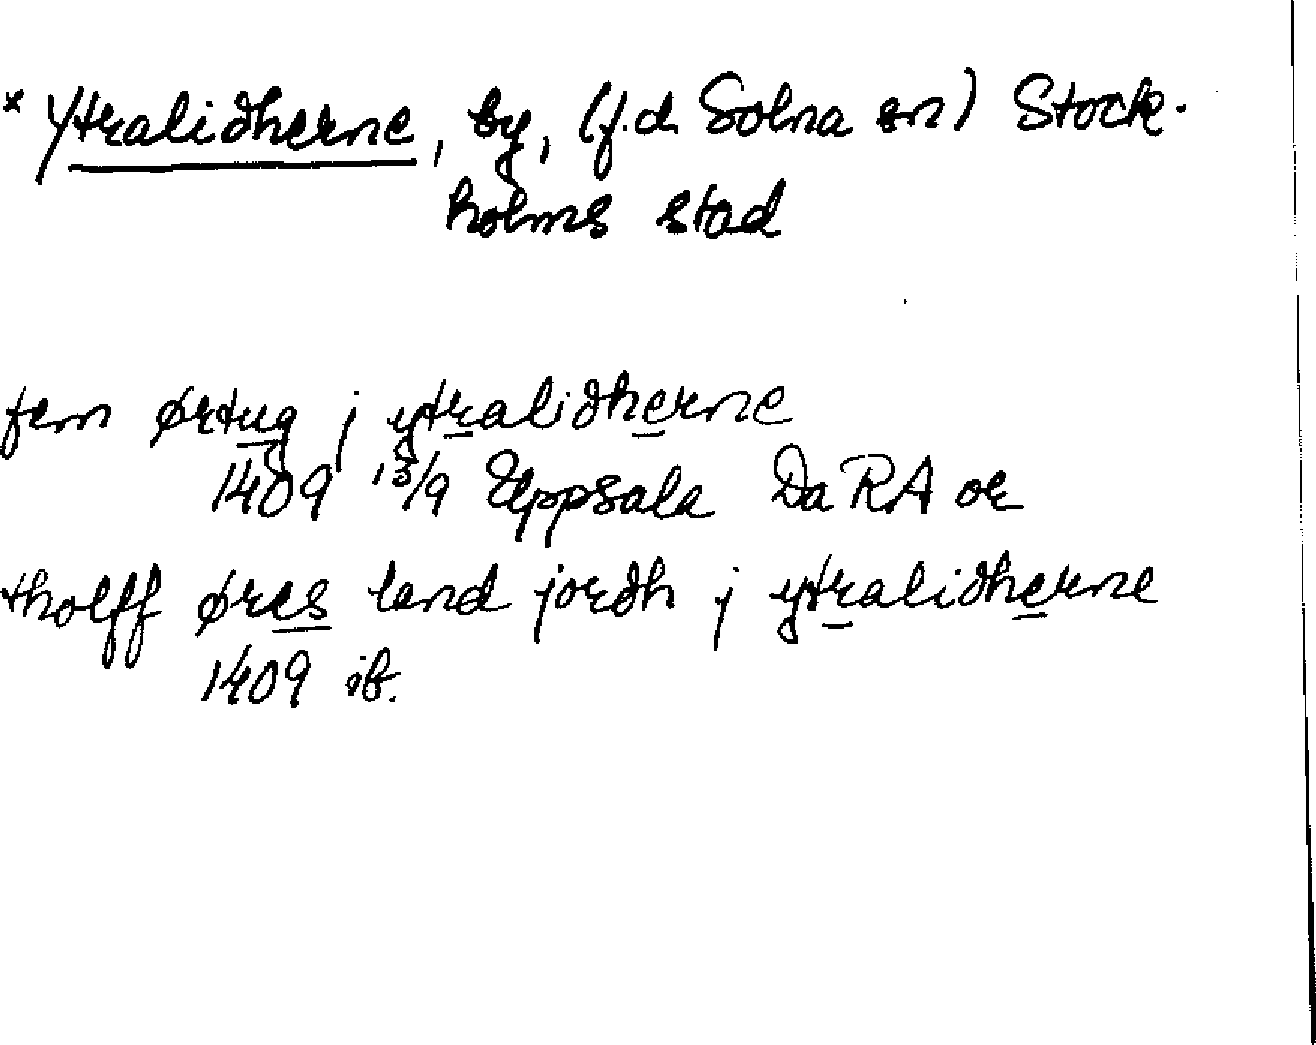 * Ytralidherne, by, (f.d. Solna sn) Stock-
holms stad
fem ørtug j ytralidherne
1409 13/9 Uppsala Da RA or
tholff øres land jordh j ytralidherne
1409 ib.